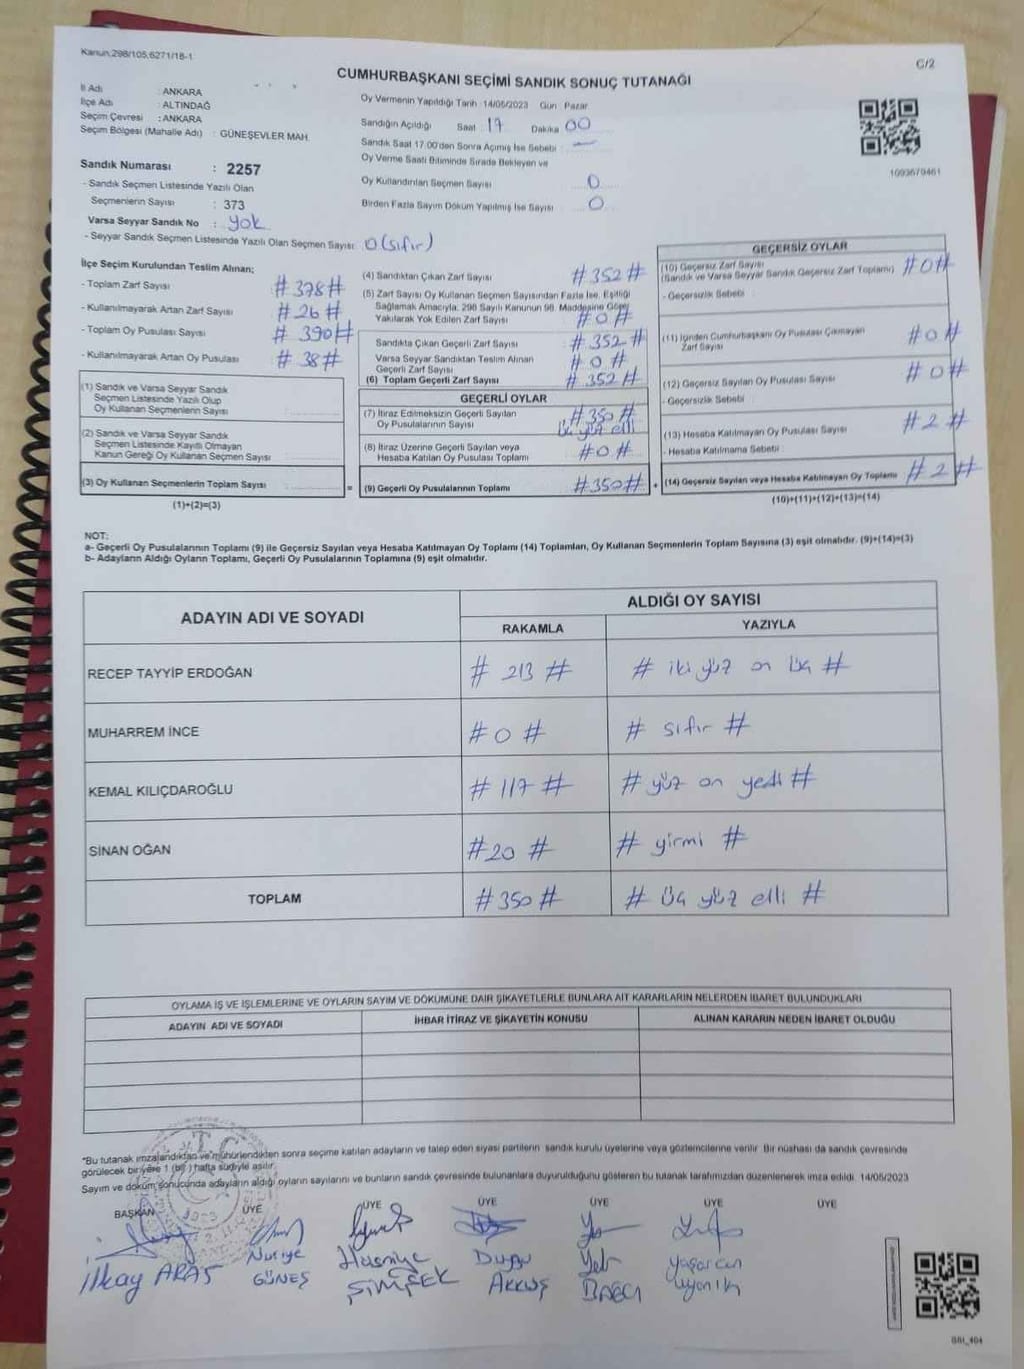 Kanun,298/105,6271/18-1
C/2
CUMHURBAŞKANI SEÇİMİ SANDIK SONUÇ TUTANAĞI
İl Adı : ANKARA
İlçe Adı : ALTINDAĞ
Seçim Çevresi : ANKARA
Seçim Bölgesi (Mahalle Adı) : GÜNEŞEVLER MAH.
Oy Vermenin Yapıldığı Tarih 14/05/2023 Gün Pazar
Sandığın Açıldığı Saat 17 Dakika 00
Sandık Saat 17.00'den Sonra Açılmış İse Sebebi :
Oy Verme Saati Bitiminde Sırada Bekleyen ve
Oy Kullandırılan Seçmen Sayısı 0
Birden Fazla Sayım Döküm Yapılmış İse Sayısı 0
1093679461
Sandık Numarası : 2257
- Sandık Seçmen Listesinde Yazılı Olan
Seçmenlerin Sayısı : 373
Varsa Seyyar Sandık No : yok
- Seyyar Sandık Seçmen Listesinde Yazılı Olan Seçmen Sayısı: 0 (sıfır)
İlçe Seçim Kurulundan Teslim Alınan;
- Toplam Zarf Sayısı # 378 #
- Kullanılmayarak Artan Zarf Sayısı # 26 #
- Toplam Oy Pusulası Sayısı # 390 #
- Kullanılmayarak Artan Oy Pusulası # 38 #
(1) Sandık ve Varsa Seyyar Sandık
Seçmen Listesinde Yazılı Olup
Oy Kullanan Seçmenlerin Sayısı :
(2) Sandık ve Varsa Seyyar Sandık
Seçmen Listesinde Kayıtlı Olmayan
Kanun Gereği Oy Kullanan Seçmen Sayısı :
(3) Oy Kullanan Seçmenlerin Toplam Sayısı =
(1)+(2)=(3)
(4) Sandıktan Çıkan Zarf Sayısı # 352 #
(5) Zarf Sayısı Oy Kullanan Seçmen Sayısından Fazla İse, Eşitliği
Sağlamak Amacıyla; 298 Sayılı Kanunun 98. Maddesine Göre
Yakılarak Yok Edilen Zarf Sayısı # 0 #
Sandıkta Çıkan Geçerli Zarf Sayısı # 352 #
Varsa Seyyar Sandıktan Teslim Alınan
Geçerli Zarf Sayısı # 0 #
(6) Toplam Geçerli Zarf Sayısı # 352 #
GEÇERLİ OYLAR
(7) İtiraz Edilmeksizin Geçerli Sayılan # 350 #
Oy Pusulalarının Sayısı üç yüz elli
(8) İtiraz Üzerine Geçerli Sayılan veya
Hesaba Katılan Oy Pusulası Toplamı # 0 #
(9) Geçerli Oy Pusulalarının Toplamı # 350 # +
GEÇERSİZ OYLAR
(10) Geçersiz Zarf Sayısı
(Sandık ve Varsa Seyyar Sandık Geçersiz Zarf Toplamı) # 0 #
- Geçersizlik Sebebi :
(11) İçinden Cumhurbaşkanı Oy Pusulası Çıkmayan
Zarf Sayısı # 0 #
(12) Geçersiz Sayılan Oy Pusulası Sayısı # 0 #
- Geçersizlik Sebebi
(13) Hesaba Katılmayan Oy Pusulası Sayısı # 2 #
- Hesaba Katılmama Sebebi :
(14) Geçersiz Sayılan veya Hesaba Katılmayan Oy Toplamı # 2 #
(10)+(11)+(12)+(13)=(14)
NOT:
a- Geçerli Oy Pusulalarının Toplamı (9) ile Geçersiz Sayılan veya Hesaba Katılmayan Oy Toplamı (14) Toplamları, Oy Kullanan Seçmenlerin Toplam Sayısına (3) eşit olmalıdır. (9)+(14)=(3)
b- Adayların Aldığı Oyların Toplamı, Geçerli Oy Pusulalarının Toplamına (9) eşit olmalıdır.
ADAYIN ADI VE SOYADI
ALDIĞI OY SAYISI
RAKAMLA YAZIYLA
RECEP TAYYİP ERDOĞAN # 213 # # iki yüz on üç #
MUHARREM İNCE # 0 # # sıfır #
KEMAL KILIÇDAROĞLU # 117 # # yüz on yedi #
SİNAN OĞAN # 20 # # yirmi #
TOPLAM # 350 # # üç yüz elli #
OYLAMA İŞ VE İŞLEMLERİNE VE OYLARIN SAYIM VE DÖKÜMÜNE DAİR ŞİKAYETLERLE BUNLARA AİT KARARLARIN NELERDEN İBARET BULUNDUKLARI
ADAYIN ADI VE SOYADI İHBAR İTİRAZ VE ŞİKAYETİN KONUSU ALINAN KARARIN NEDEN İBARET OLDUĞU
*Bu tutanak imzalandıktan ve mühürlendikten sonra seçime katılan adayların ve talep eden siyasi partilerin sandık kurulu üyelerine veya gözlemcilerine verilir. Bir nüshası da sandık çevresinde
görülecek bir yere 1 (bir) hafta süreyle asılır.
Sayım ve döküm sonucunda adayların aldığı oyların sayılarını ve bunların sandık çevresinde bulunanlara duyurulduğunu gösteren bu tutanak tarafımızdan düzenlenerek imza edildi. 14/05/2023
T.C.
BAŞKAN ÜYE ÜYE ÜYE ÜYE ÜYE ÜYE
İlkay ARAS
Nuriye GÜNEŞ
Hasniye ŞİMŞEK
Duygu AKKUŞ
BAĞCI
Yaşarcan Uyanık